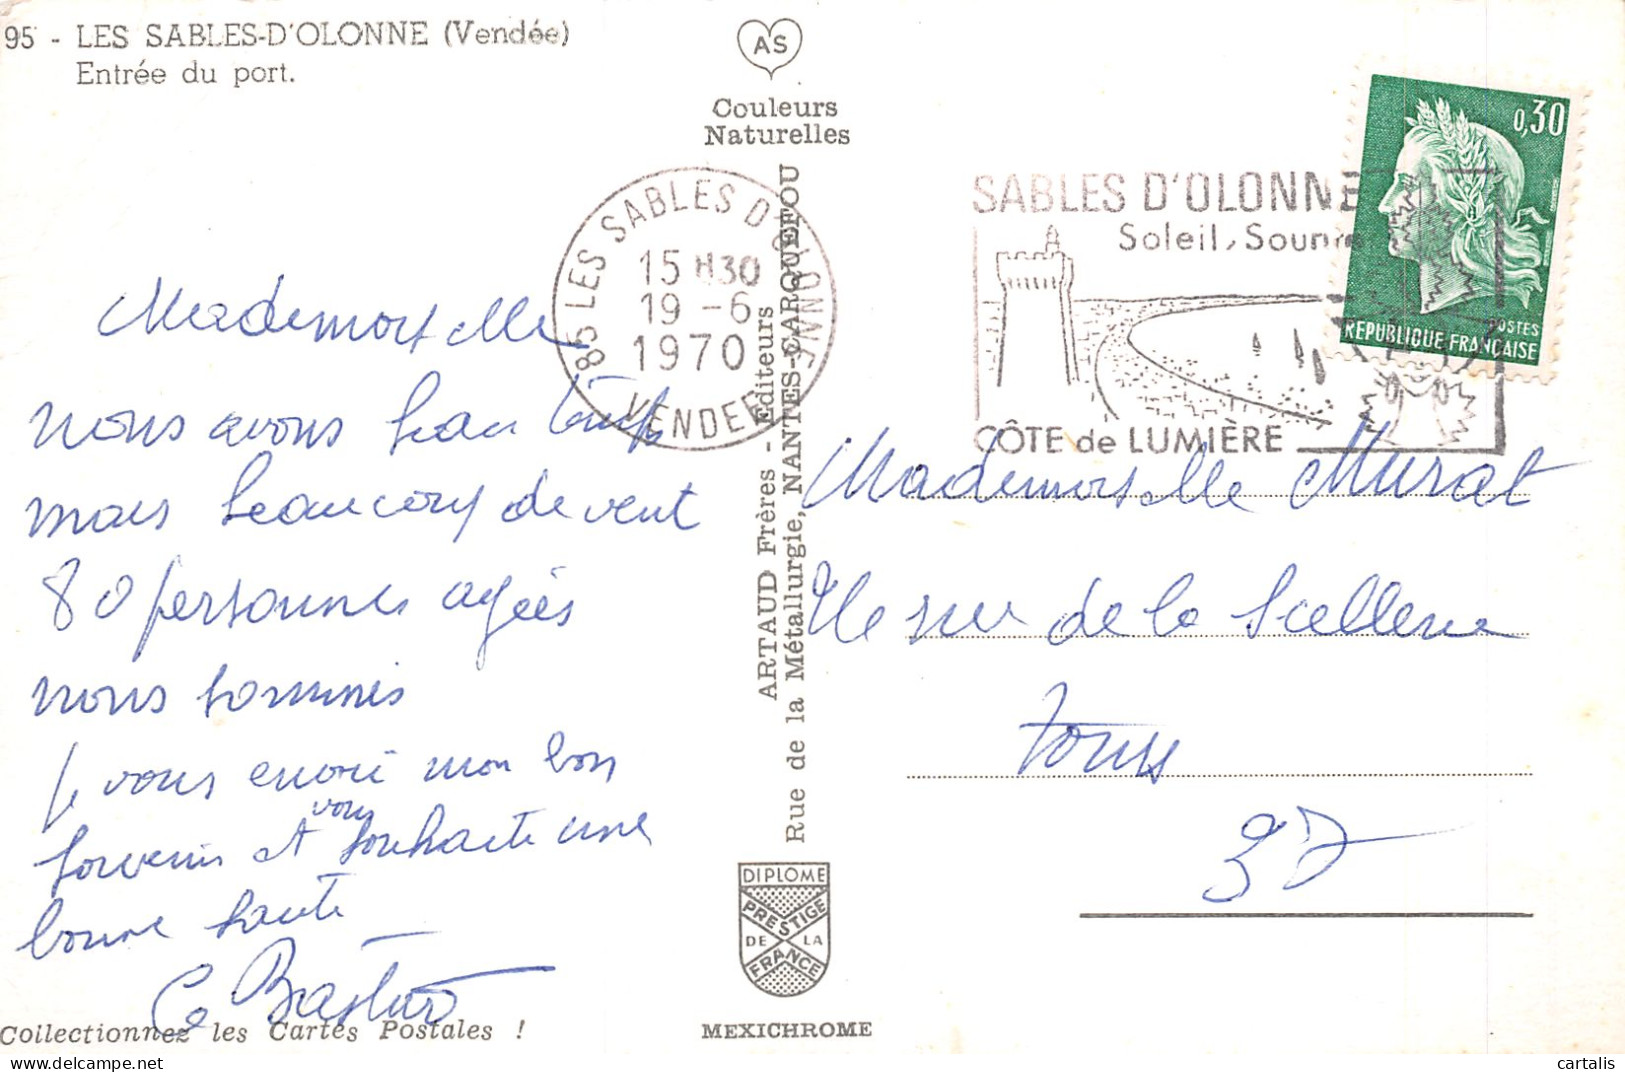 95 - LES SABLES-D'OLONNE (Vendée)
Entrée du port.
AS
Couleurs
Naturelles
85 LES SABLES D'OLONNE
15 H30
19 -6
1970
VENDEE
SABLES D'OLONNE
Soleil, Sour
CÔTE de LUMIÈRE
0,30
POSTES
REPUBLIQUE FRANÇAISE
Mademoiselle
nous avons beau temps
mais beaucoup de vent
80 personnes agées
nous sommes
je vous envoie mon bon
souvenir et vous souhaite une
bonne santé
ARTAUD Frères - Editeurs
Rue de la Métallurgie, NANTES-CARQUEFOU
Mademoiselle Murat
rue de la Scellerie
Tours
37
DIPLOME
PRESTIGE
DE LA
FRANCE
MEXICHROME
Collectionnez les Cartes Postales !
cartalis